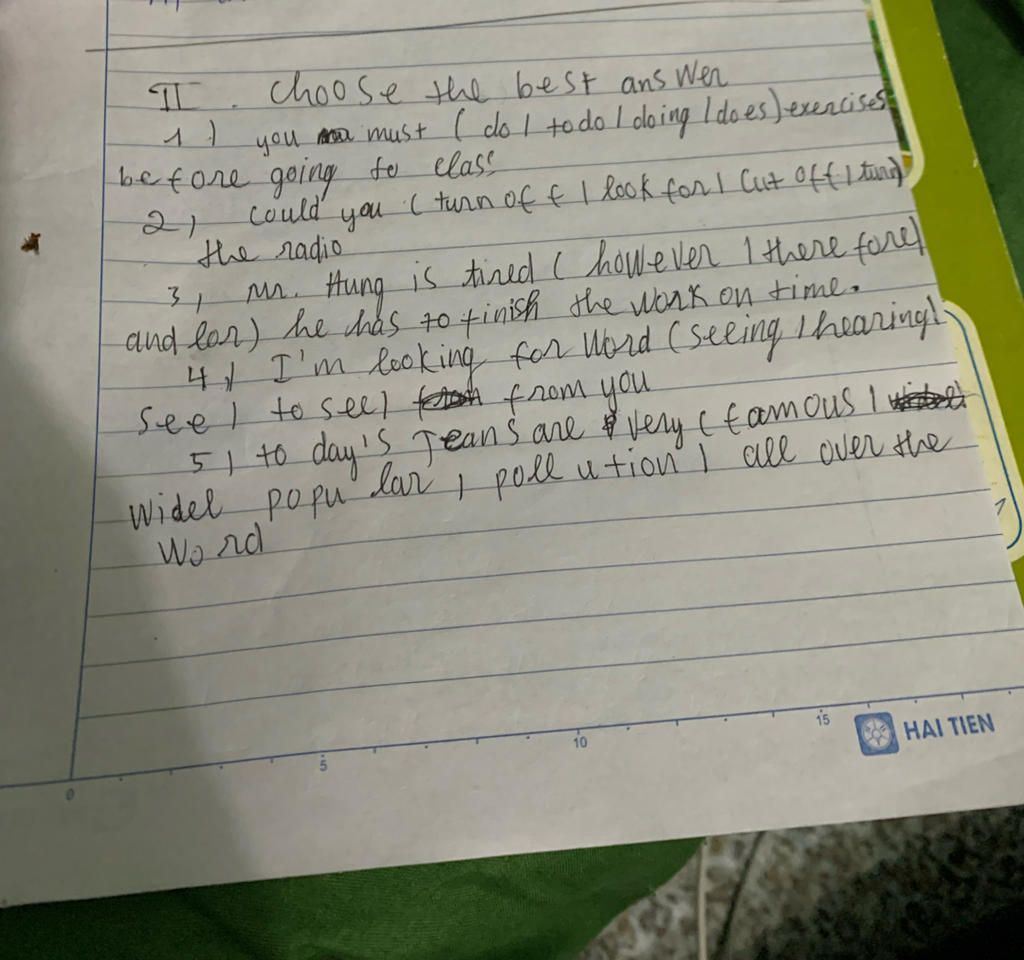 II. Choose the best answer
1) you must (do / to do / doing / does) exercises
before going to class
2) Could you (turn off / look for / cut off / turn)
the radio
3) Mr. Hung is tired (however / therefore/
and /or) he has to finish the work on time.
4) I'm looking for Word (seeing / hearing/
see / to see) from you
5) to day's Jeans are very (famous /
widel popular / pollution) all over the
Word
0 5 10 15
HAI TIEN